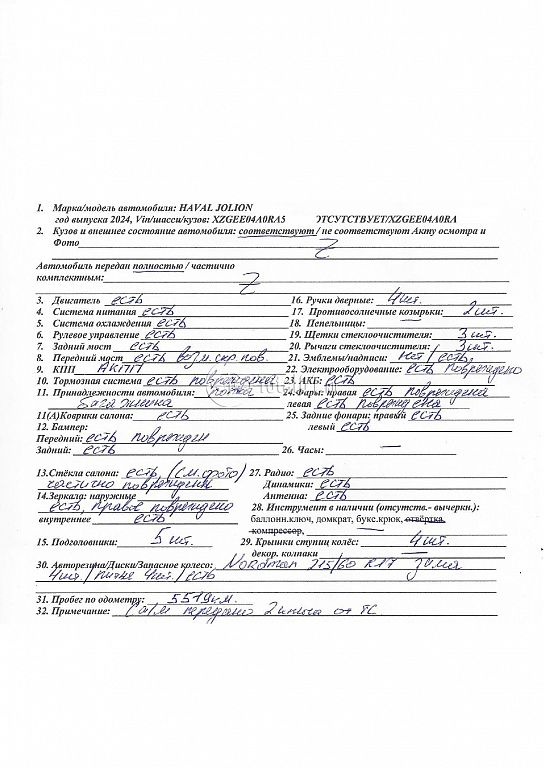 1. Марка/модель автомобиля: HAVAL JOLION
год выпуска 2024, Vin/шасси/кузов: XZGEE04A0RA5 ЭТСУТСТВУЕТ/XZGEE04A0RA
2. Кузов и внешнее состояние автомобиля: соответствуют / не соответствуют Акту осмотра и
Фото
Автомобиль передан полностью / частично
комплектным: Z
3. Двигатель есть
16. Ручки дверные: 4 шт.
4. Система питания есть
17. Противосолнечные козырьки: 2 шт.
5. Система охлаждения есть
18. Пепельницы: —
6. Рулевое управление есть
19. Щетки стеклоочистителя: 3 шт.
7. Задний мост есть
20. Рычаги стеклоочистителя: 3 шт.
8. Передний мост есть возм. скр. пов.
21. Эмблемы/надписи: нет / есть
9. КПП АКПП
22. Электрооборудование: есть повреждено
10. Тормозная система есть повреждены
23. АКБ: есть
11. Принадлежности автомобиля: полка
багажника
24. Фары: правая есть повреждена
левая есть повреждена
11(А) Коврики салона: есть
25. Задние фонари: правый есть
левый есть
12. Бампер:
Передний: есть поврежден
Задний: есть
26. Часы: —
13. Стёкла салона: есть, (см. фото)
частично повреждены
27. Радио: есть
Динамики: есть
14. Зеркала: наружные
есть, правое повреждено
Антенна: есть
внутреннее есть
28. Инструмент в наличии (отсутств.- вычеркн.):
баллонн.ключ, домкрат, букс.крюк, отвёртка,
компрессор,
15. Подголовники: 5 шт.
29. Крышки ступиц колёс: 4 шт.
декор. колпаки —
30. Авторезина/Диски/Запасное колесо: Nordman 215/60 R17 зима
4 шт. / литые 4 шт. / есть
31. Пробег по одометру: 5519 км.
32. Примечание: передано 2 ключа от ТС